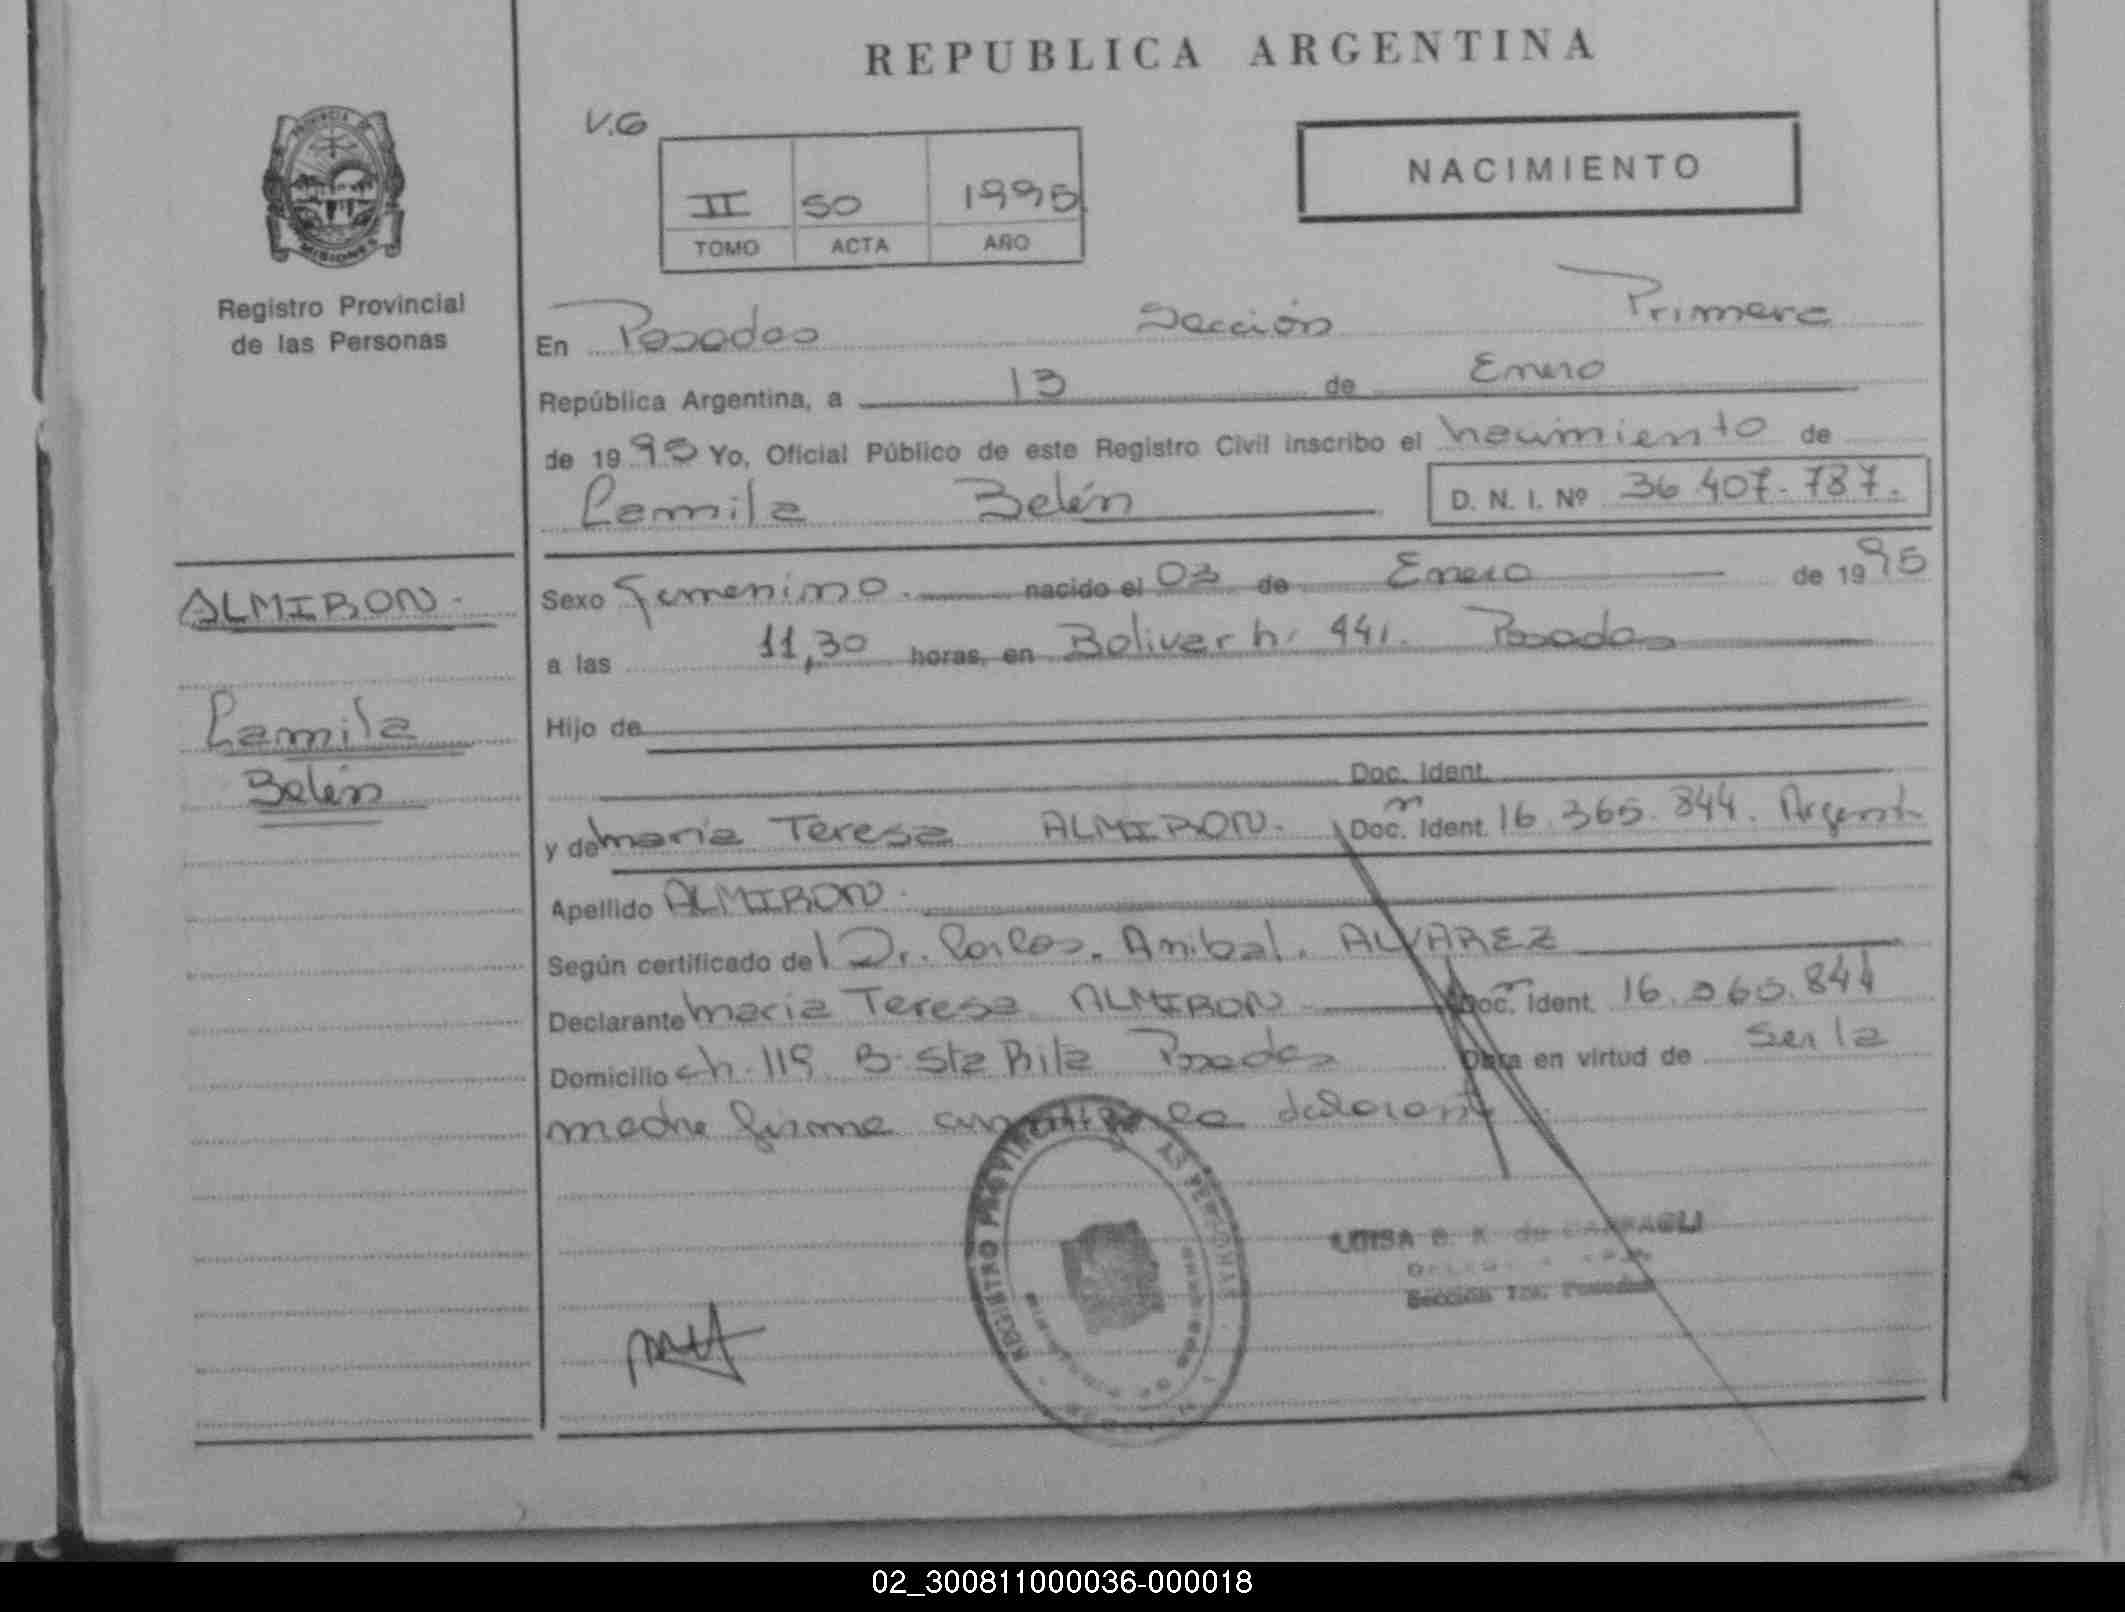 REPUBLICA ARGENTINA
V.G
NACIMIENTO
II 50 1995
TOMO ACTA AÑO
PROVINCIA DE
MISIONES
Registro Provincial
de las Personas
En Posadas Sección Primera
República Argentina, a 13 de Enero
de 1995 Yo, Oficial Público de este Registro Civil inscribo el nacimiento de
Camila Belén D. N. I. Nº 36.407.787.
ALMIRON.
Camila
Belén
Sexo Femenino. nacido el 03 de Enero de 1995
a las 11,30 horas, en Bolivar n. 441. Posadas
Hijo de
Doc. Ident.
y de Maria Teresa ALMIRON. Doc. Ident. 16.365.844. Argent
Apellido ALMIRON.
Según certificado del Dr. Carlos. Anibal. ALVAREZ
Declarante Maria Teresa ALMIRON Doc. Ident. 16.365.844
Domicilio ch. 119 B. Sta Rita Posadas Obra en virtud de ser la
madre firma declarante
REGISTRO PROVINCIAL DE LAS PERSONAS
LUISA de
Sección 1ra. Posadas
02_300811000036-000018